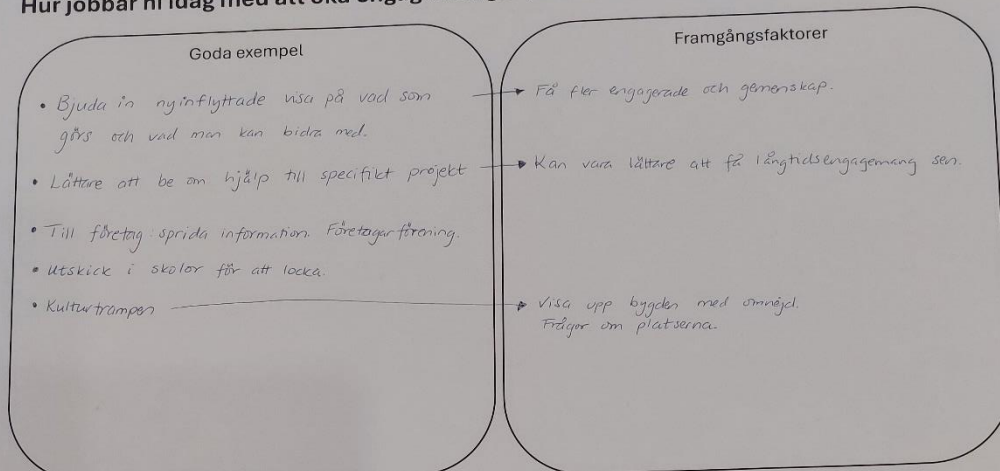 Hur jobbar ni idag med att öka
Goda exempel
• Bjuda in nyinflyttade visa på vad som
görs och vad man kan bidra med.
• Lättare att be om hjälp till specifikt projekt
• Till företag: sprida information. Företagarförening.
• Utskick i skolor för att locka.
• Kulturtrampen
Framgångsfaktorer
Få fler engagerade och gemenskap.
Kan vara lättare att få långtidsengagemang sen.
Visa upp bygden med omnejd.
Frågor om platserna.